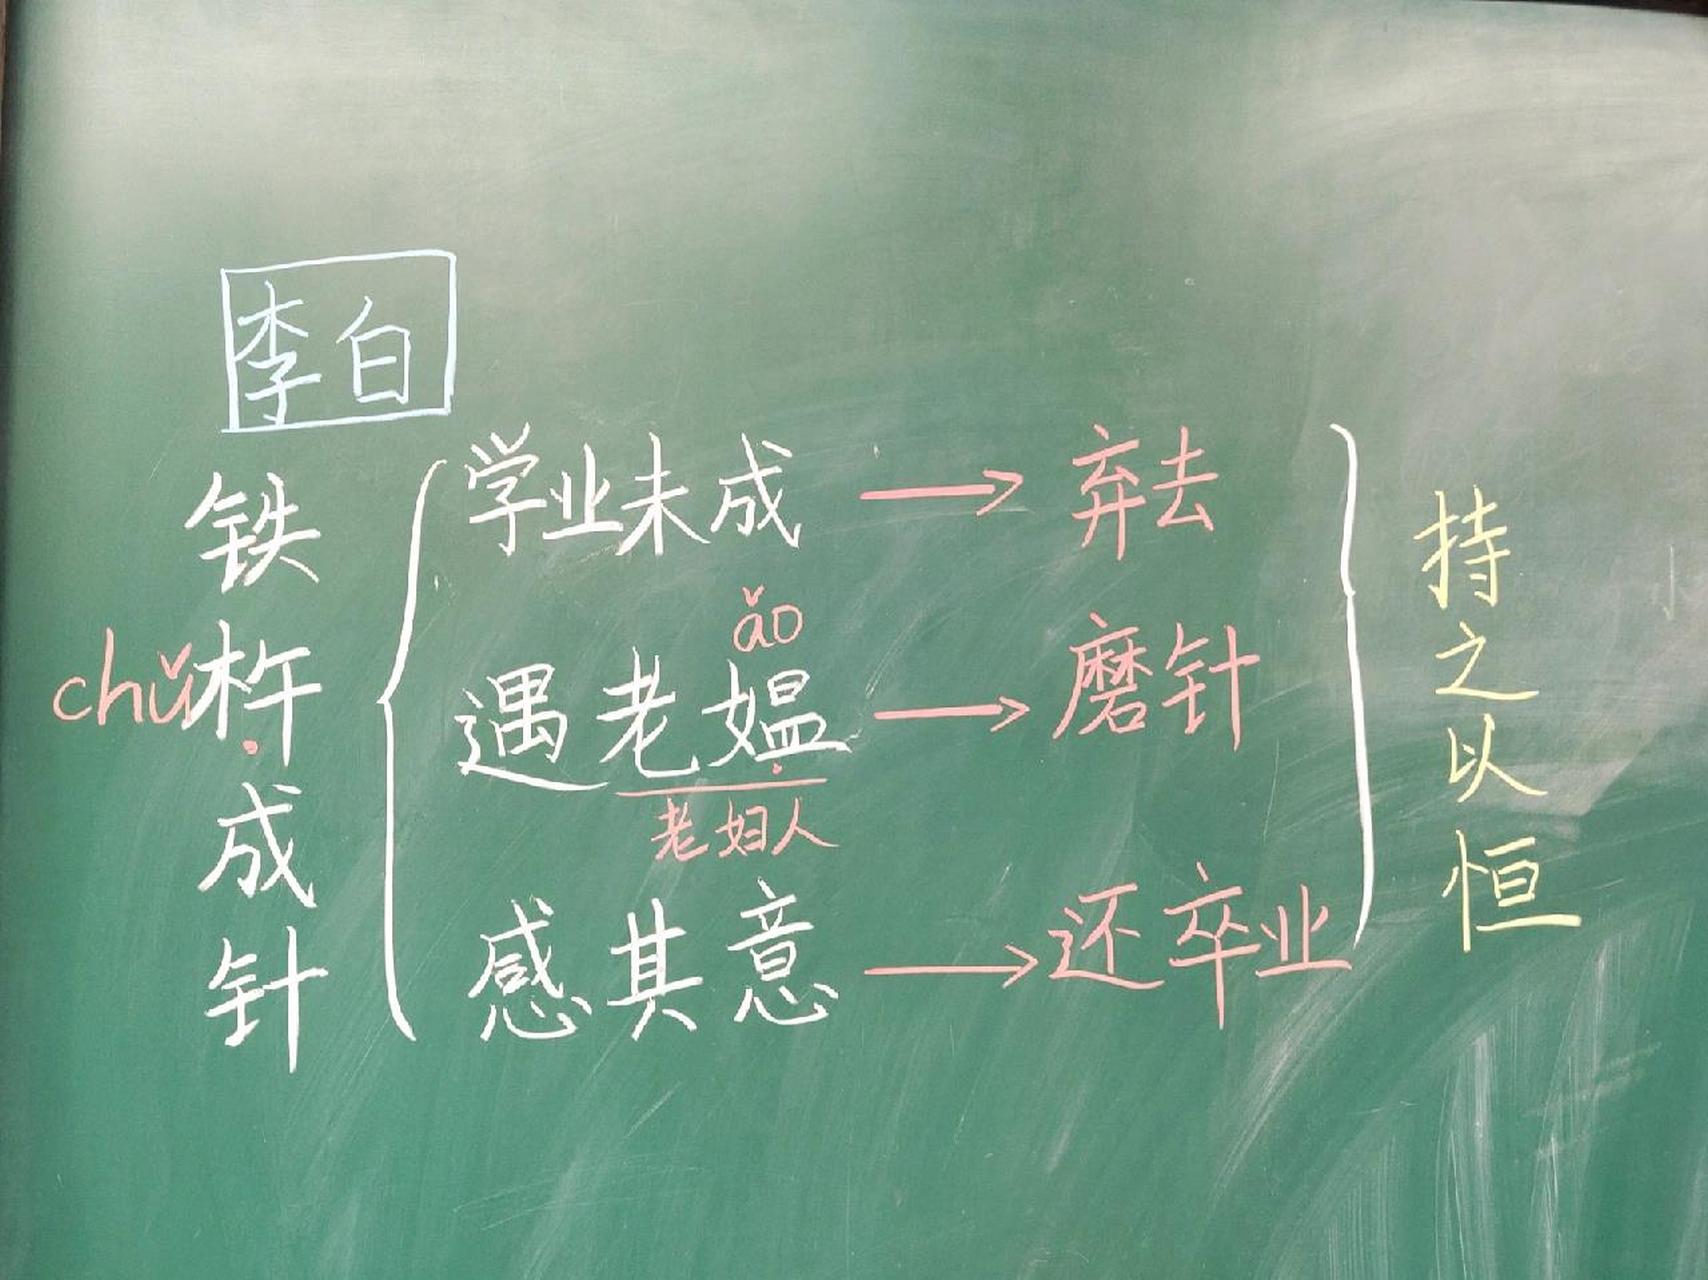 李白
chǔ
铁杵成针
学业未成 → 弃去
ǎo
遇老媪 → 磨针
老妇人
感其意 → 还卒业
持之以恒